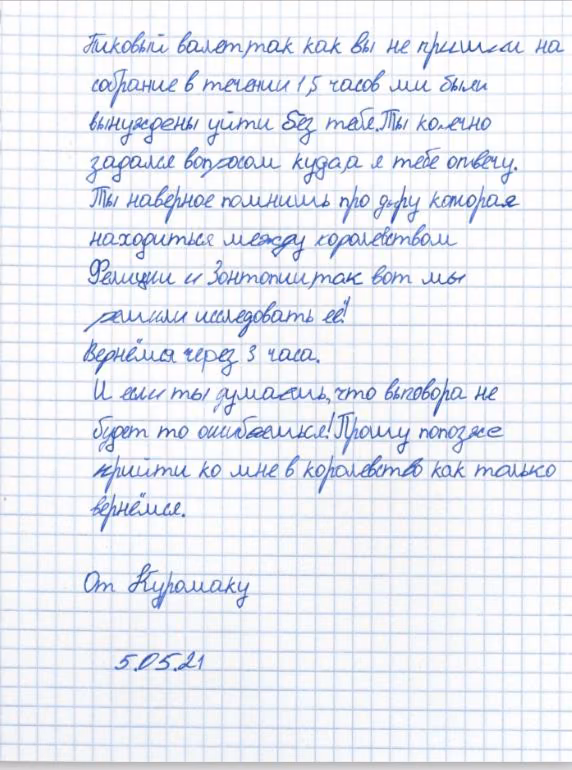 Пиковый валет,так как вы не пришли на
собрание в течении 1,5 часов ми были
вынуждены уйти без тебя.Ты конечно
задался вопросом куда,а я тебе отвечу.
Ты наверное помнишь про дыру которая
находиться между королевством
Фелиции и Зонтопии,так вот мы
решили исследовать её!
Вернёмся через 3 часа.
И если ты думаешь,что выговора не
будет то ошибаешься!Прошу попозже
прийти ко мне в королевство как только
вернёмся.
От Куромаку
5.05.21